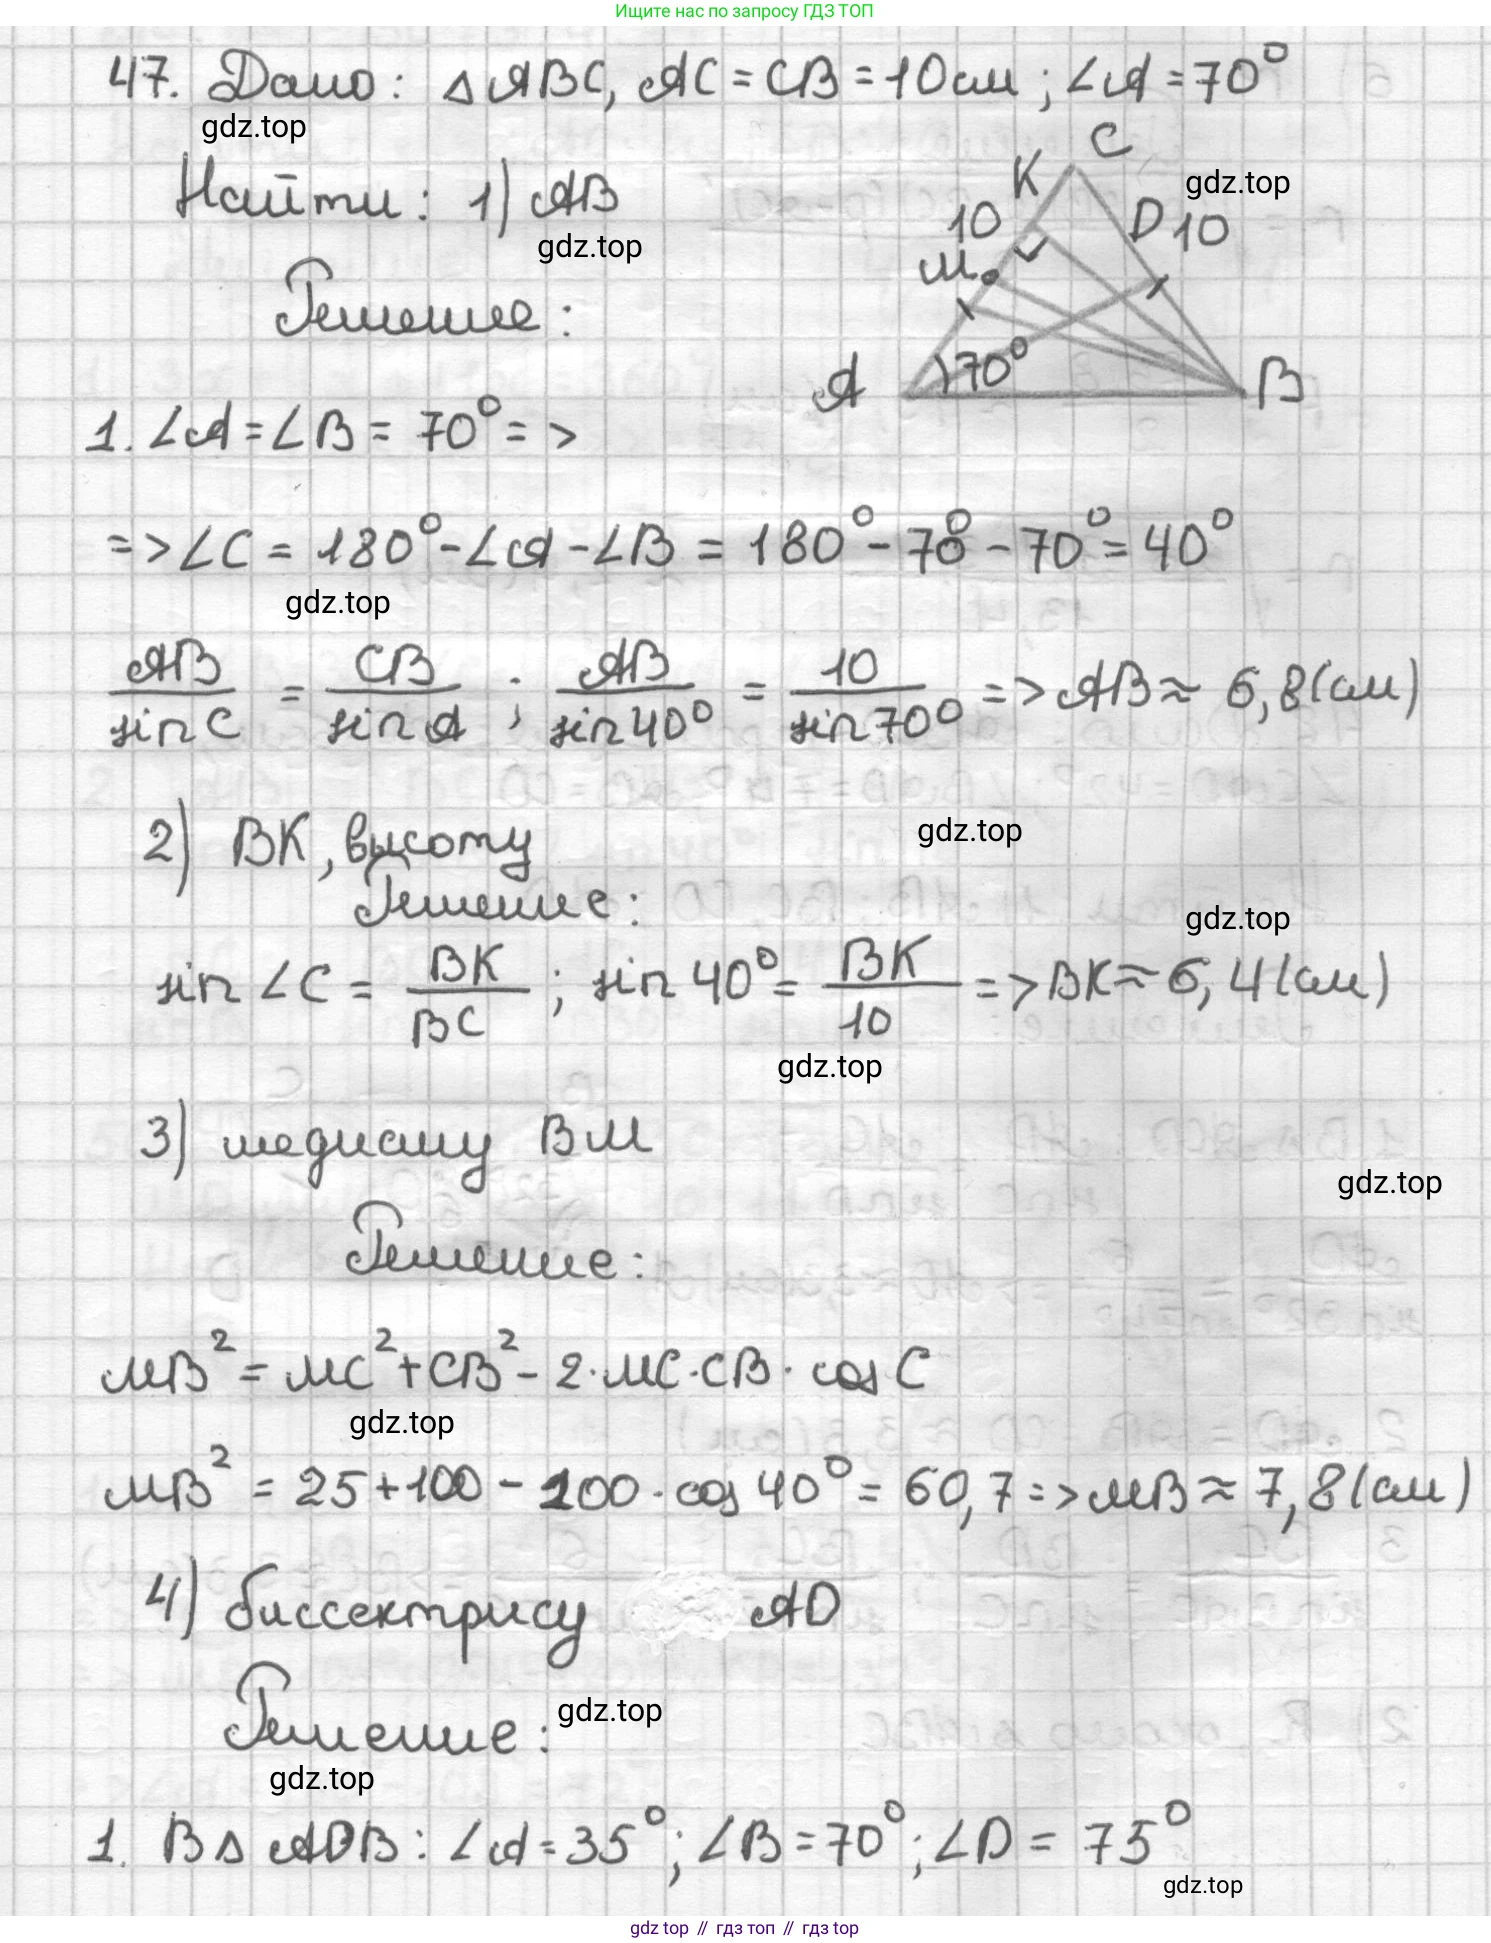 Ищите нас по запросу ГДЗ ТОП
47. Дано: △ ABC, AC = CB = 10 см; ∠A = 70°
gdz.top
Найти: 1) AB
gdz.top
C
K
gdz.top
10
D 10
M
70°
A
B
Решение:
1. ∠A = ∠B = 70° =>
=> ∠C = 180° - ∠A - ∠B = 180° - 70° - 70° = 40°
gdz.top
AB/sin C = CB/sin A ; AB/sin 40° = 10/sin 70° => AB ≈ 6,8 (см)
2) BK, высоту
gdz.top
Решение:
gdz.top
sin ∠C = BK/BC ; sin 40° = BK/10 => BK ≈ 6,4 (см)
gdz.top
3) медиану BM
gdz.top
Решение:
MB² = MC² + CB² - 2·MC·CB·cos C
gdz.top
MB² = 25 + 100 - 100·cos 40° = 60,7 => MB ≈ 7,8 (см)
4) биссектрису AD
Решение:
gdz.top
gdz.top
1. В △ ADB: ∠A = 35°; ∠B = 70°; ∠D = 75°
gdz.top
gdz top // гдз топ // гдз top